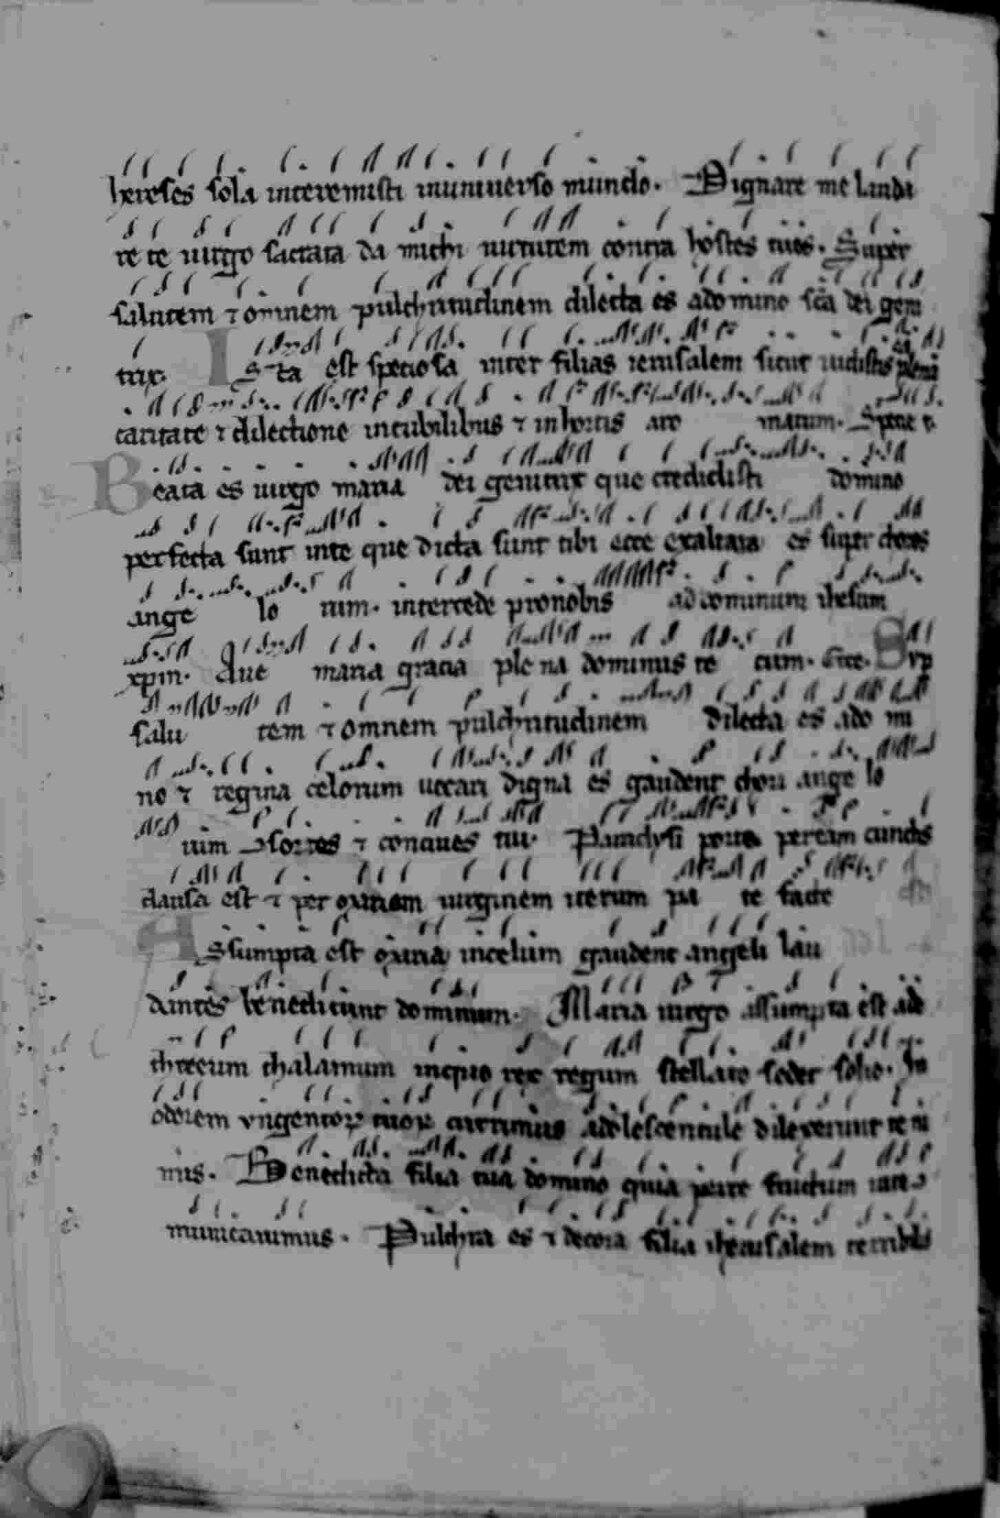 hereses sola interemisti inuniuerso mundo. Dignare me lauda
re te uirgo sacrata da michi uirtutem contra hostes tuos. Super
salutem ⁊ omnem pulchritudinem dilecta es adomino sc̄a dei geni
trix. Ista est speciosa inter filias ierusalem sicut uidistis eā plenā
caritate ⁊ dilectione incubilibus ⁊ inhortis aro matum.
Beata es uirgo maria dei genitrix que credidisti domino
perfecta sunt inte que dicta sunt tibi ecce exaltata es super choros
ange lo rum. intercede pronobis addominum ihesum
xpm. Aue maria gracia ple na dominus te cum. Sup
salu tem ⁊ omnem pulchritudinem dilecta es ado mi
no ⁊ regina celorum uocari digna es gaudent chori ange lo
rum ↄsortes ⁊ conciues tui. Paradysi porta per euam cunctis
clausa est ⁊ per mariam uirginem iterum pa te facta
Assumpta est maria incelum gaudent angeli lau
dantes benedicunt dominum. Maria uirgo assumpta est ad
ethereum thalamum inquo rex regum stellato sedet solio. In
odorem vngentoꝝ tuoꝝ currimus adolescentule dilexerunt te ni
mis. Benedicta filia tua domino quia per te fructum uite ↄ
municauimus. Pulchra es ⁊ decora filia iherusalem terribilis